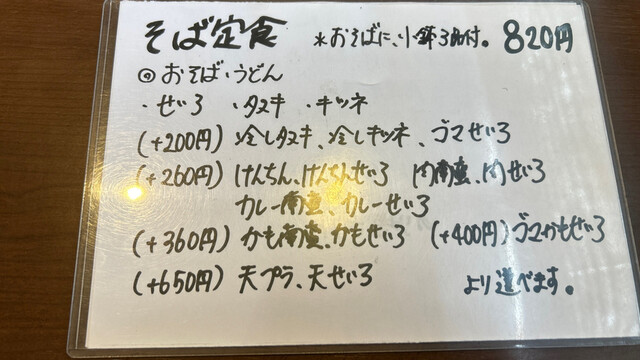 そば定食 *おそばに、小鉢3品付。 820円
◎おそば・うどん
・せいろ ・タヌキ ・キツネ
(+200円) 冷しタヌキ、冷しキツネ、ゴマせいろ
(+260円) けんちん、けんちんせいろ 肉南蛮、肉せいろ
カレー南蛮、カレーせいろ
(+360円) かも南蛮、かもせいろ (+400円) ゴマかもせいろ
(+650円) 天プラ、天せいろ より選べます。